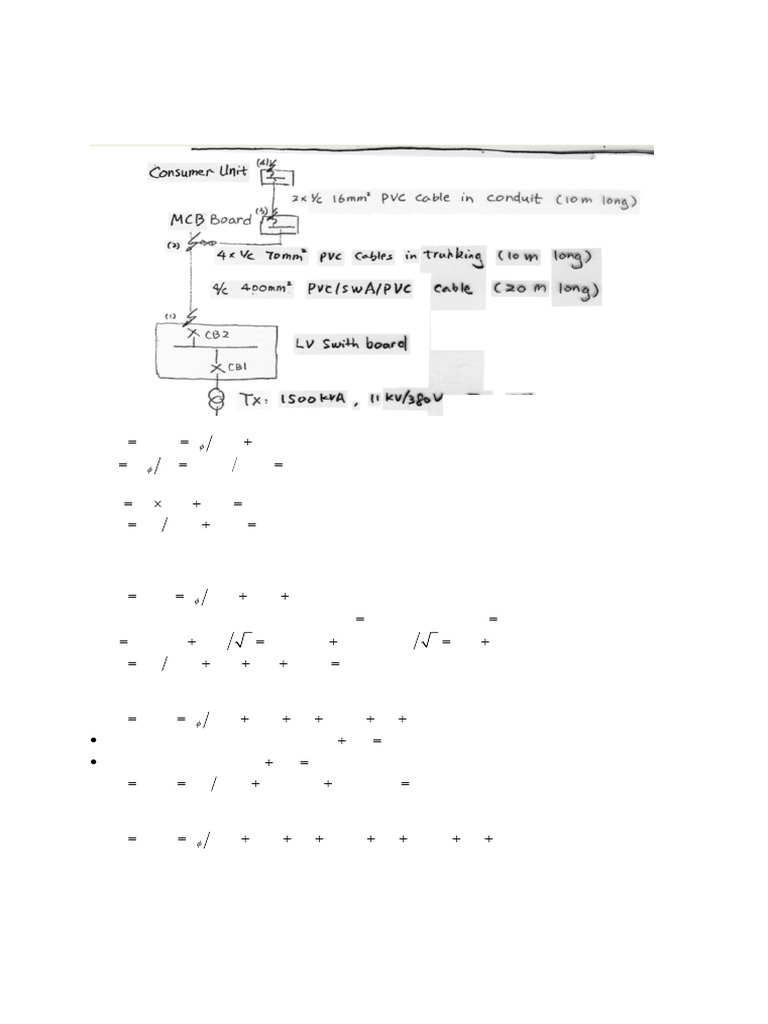 Consumer Unit (4)
2x 1/c 16mm² PVC cable in conduit (10m long)
MCB Board (3)
(2)
4 x 1/c 70mm² PVC Cables in trunking (10 m long)
4/c 400mm² PVC/SWA/PVC cable (20 m long)
(1)
CB2
LV Swith board
CB1
Tx: 1500kVA, 11kV/380V
= = ϕ/ +
= ϕ/ = / =
= × + =
= / + =
= = ϕ/ + +
= =
= + /√ = + /√ = +
= / + + + =
= = ϕ/ + + + + +
• + =
• + =
= = / + + =
= = ϕ/ + + + + + + +